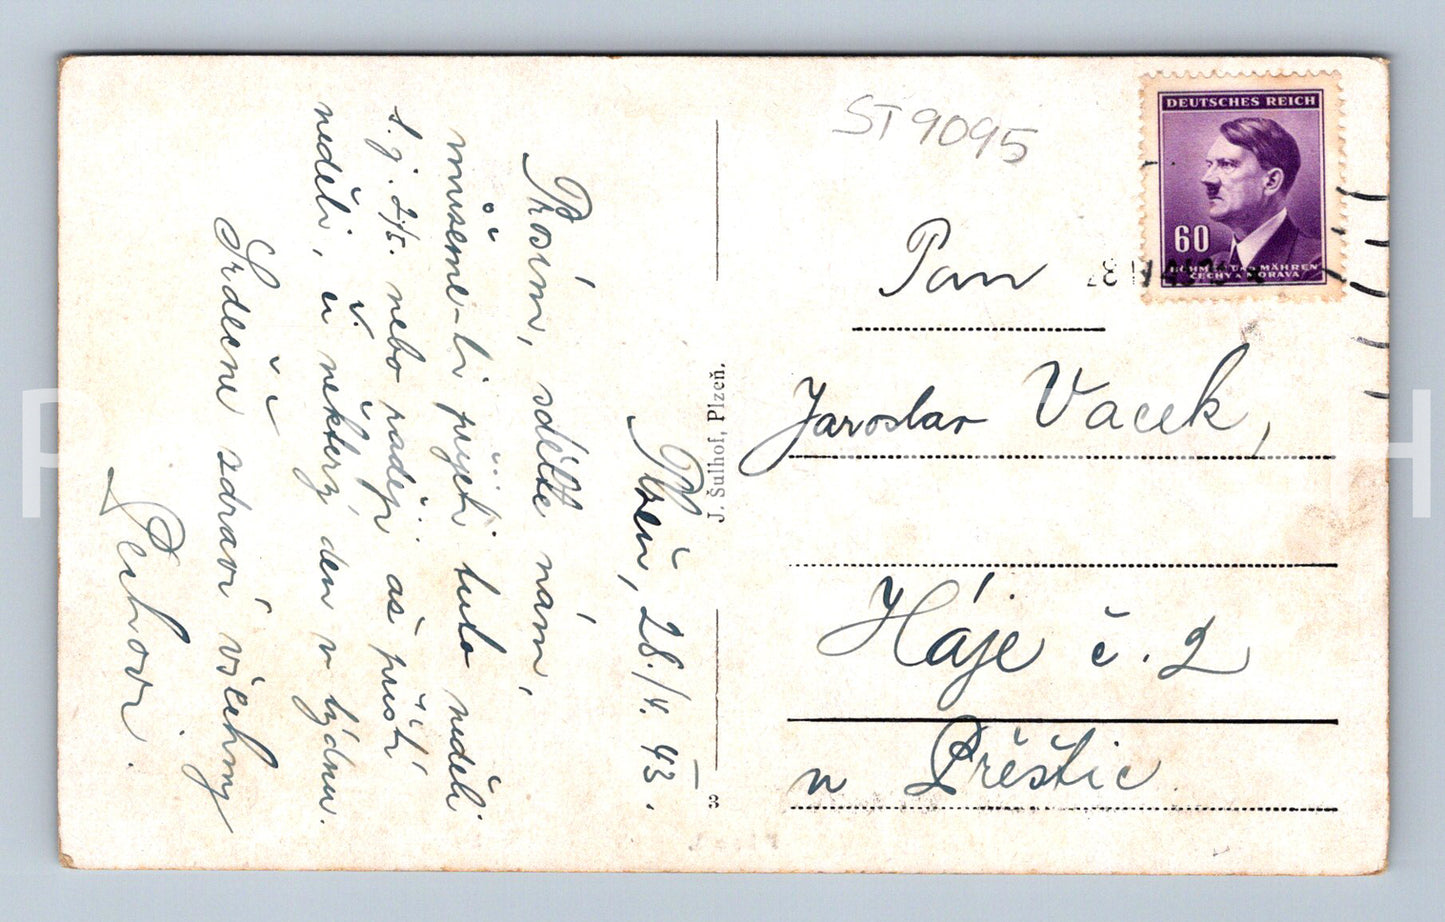 Plzeň, 28./4. 43.
Prosím, sdělte nám,
můžeme-li přijeti tuto neděli
t. j. 2/5. nebo raději až příští
neděli, či některý den v týdnu.
Srdečně zdraví všechny
ST9095
DEUTSCHES REICH
60
BÖHMEN UND MÄHREN
ČECHY A MORAVA
Pan
Jaroslav Vacek,
Háje č. 2
u Přeštic
J. Šulhof, Plzeň.
3